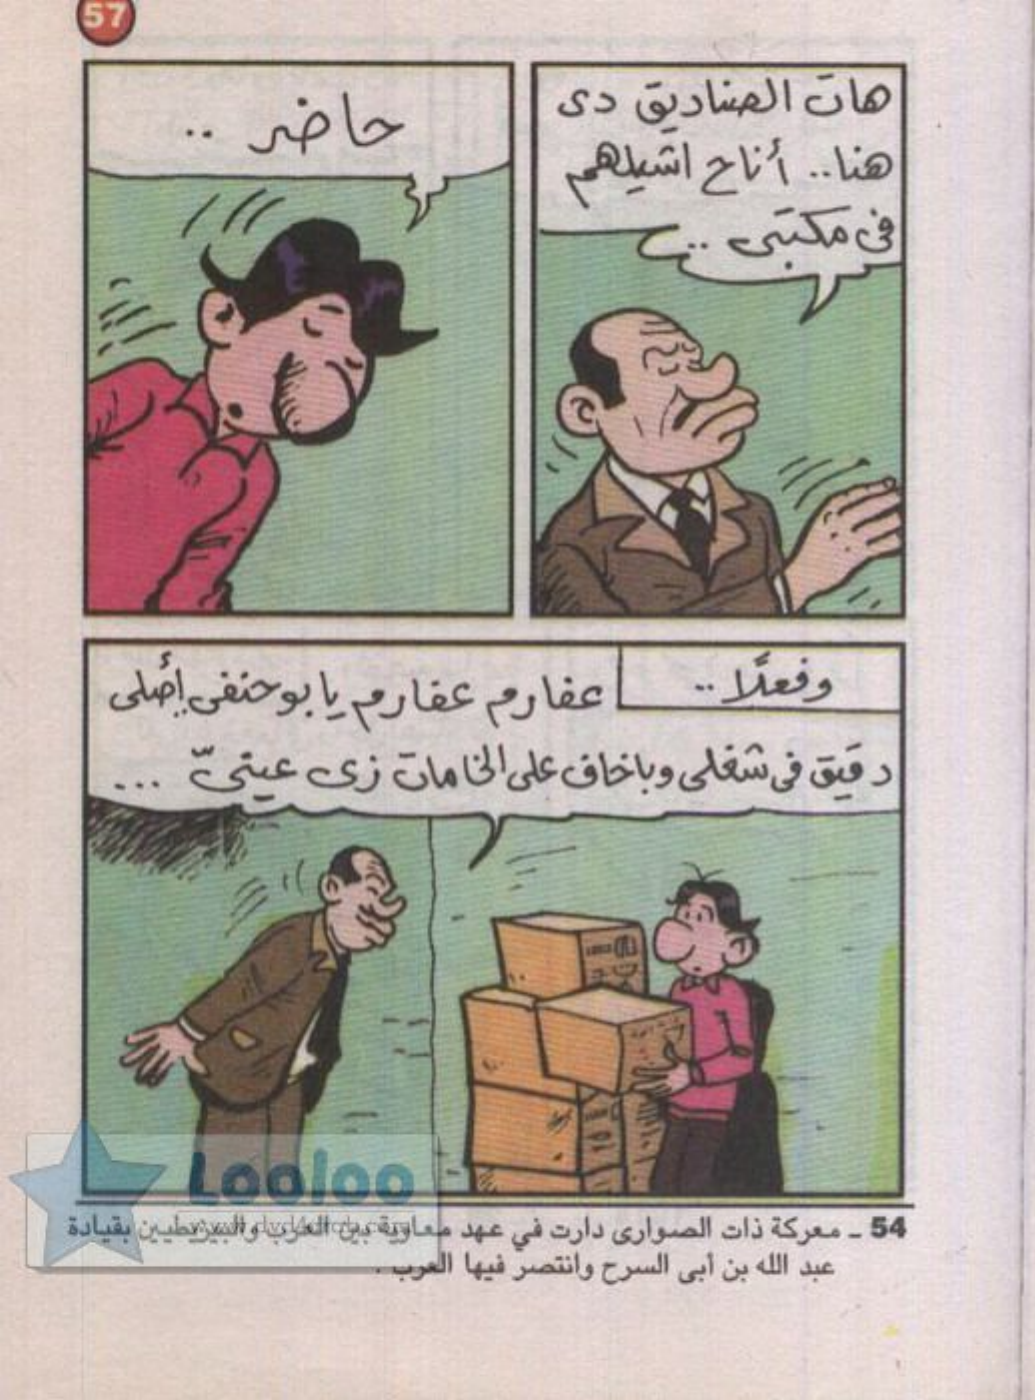 57
هات الصناديق دى
هنا.. أناح اشيلهم
فى مكتبى ..
حاضر ..
وفعلًا ..
عفارم عفارم يا بوحنفى إصلى
دقيق فى شغلى وباخاف على الخامات زى عينىّ ...
Looloo
www.dvd4arab.com
54 ــ معركة ذات الصوارى دارت في عهد معاوية بين العرب والبيزنطيين بقيادة
عبد الله بن أبى السرح وانتصر فيها العرب .